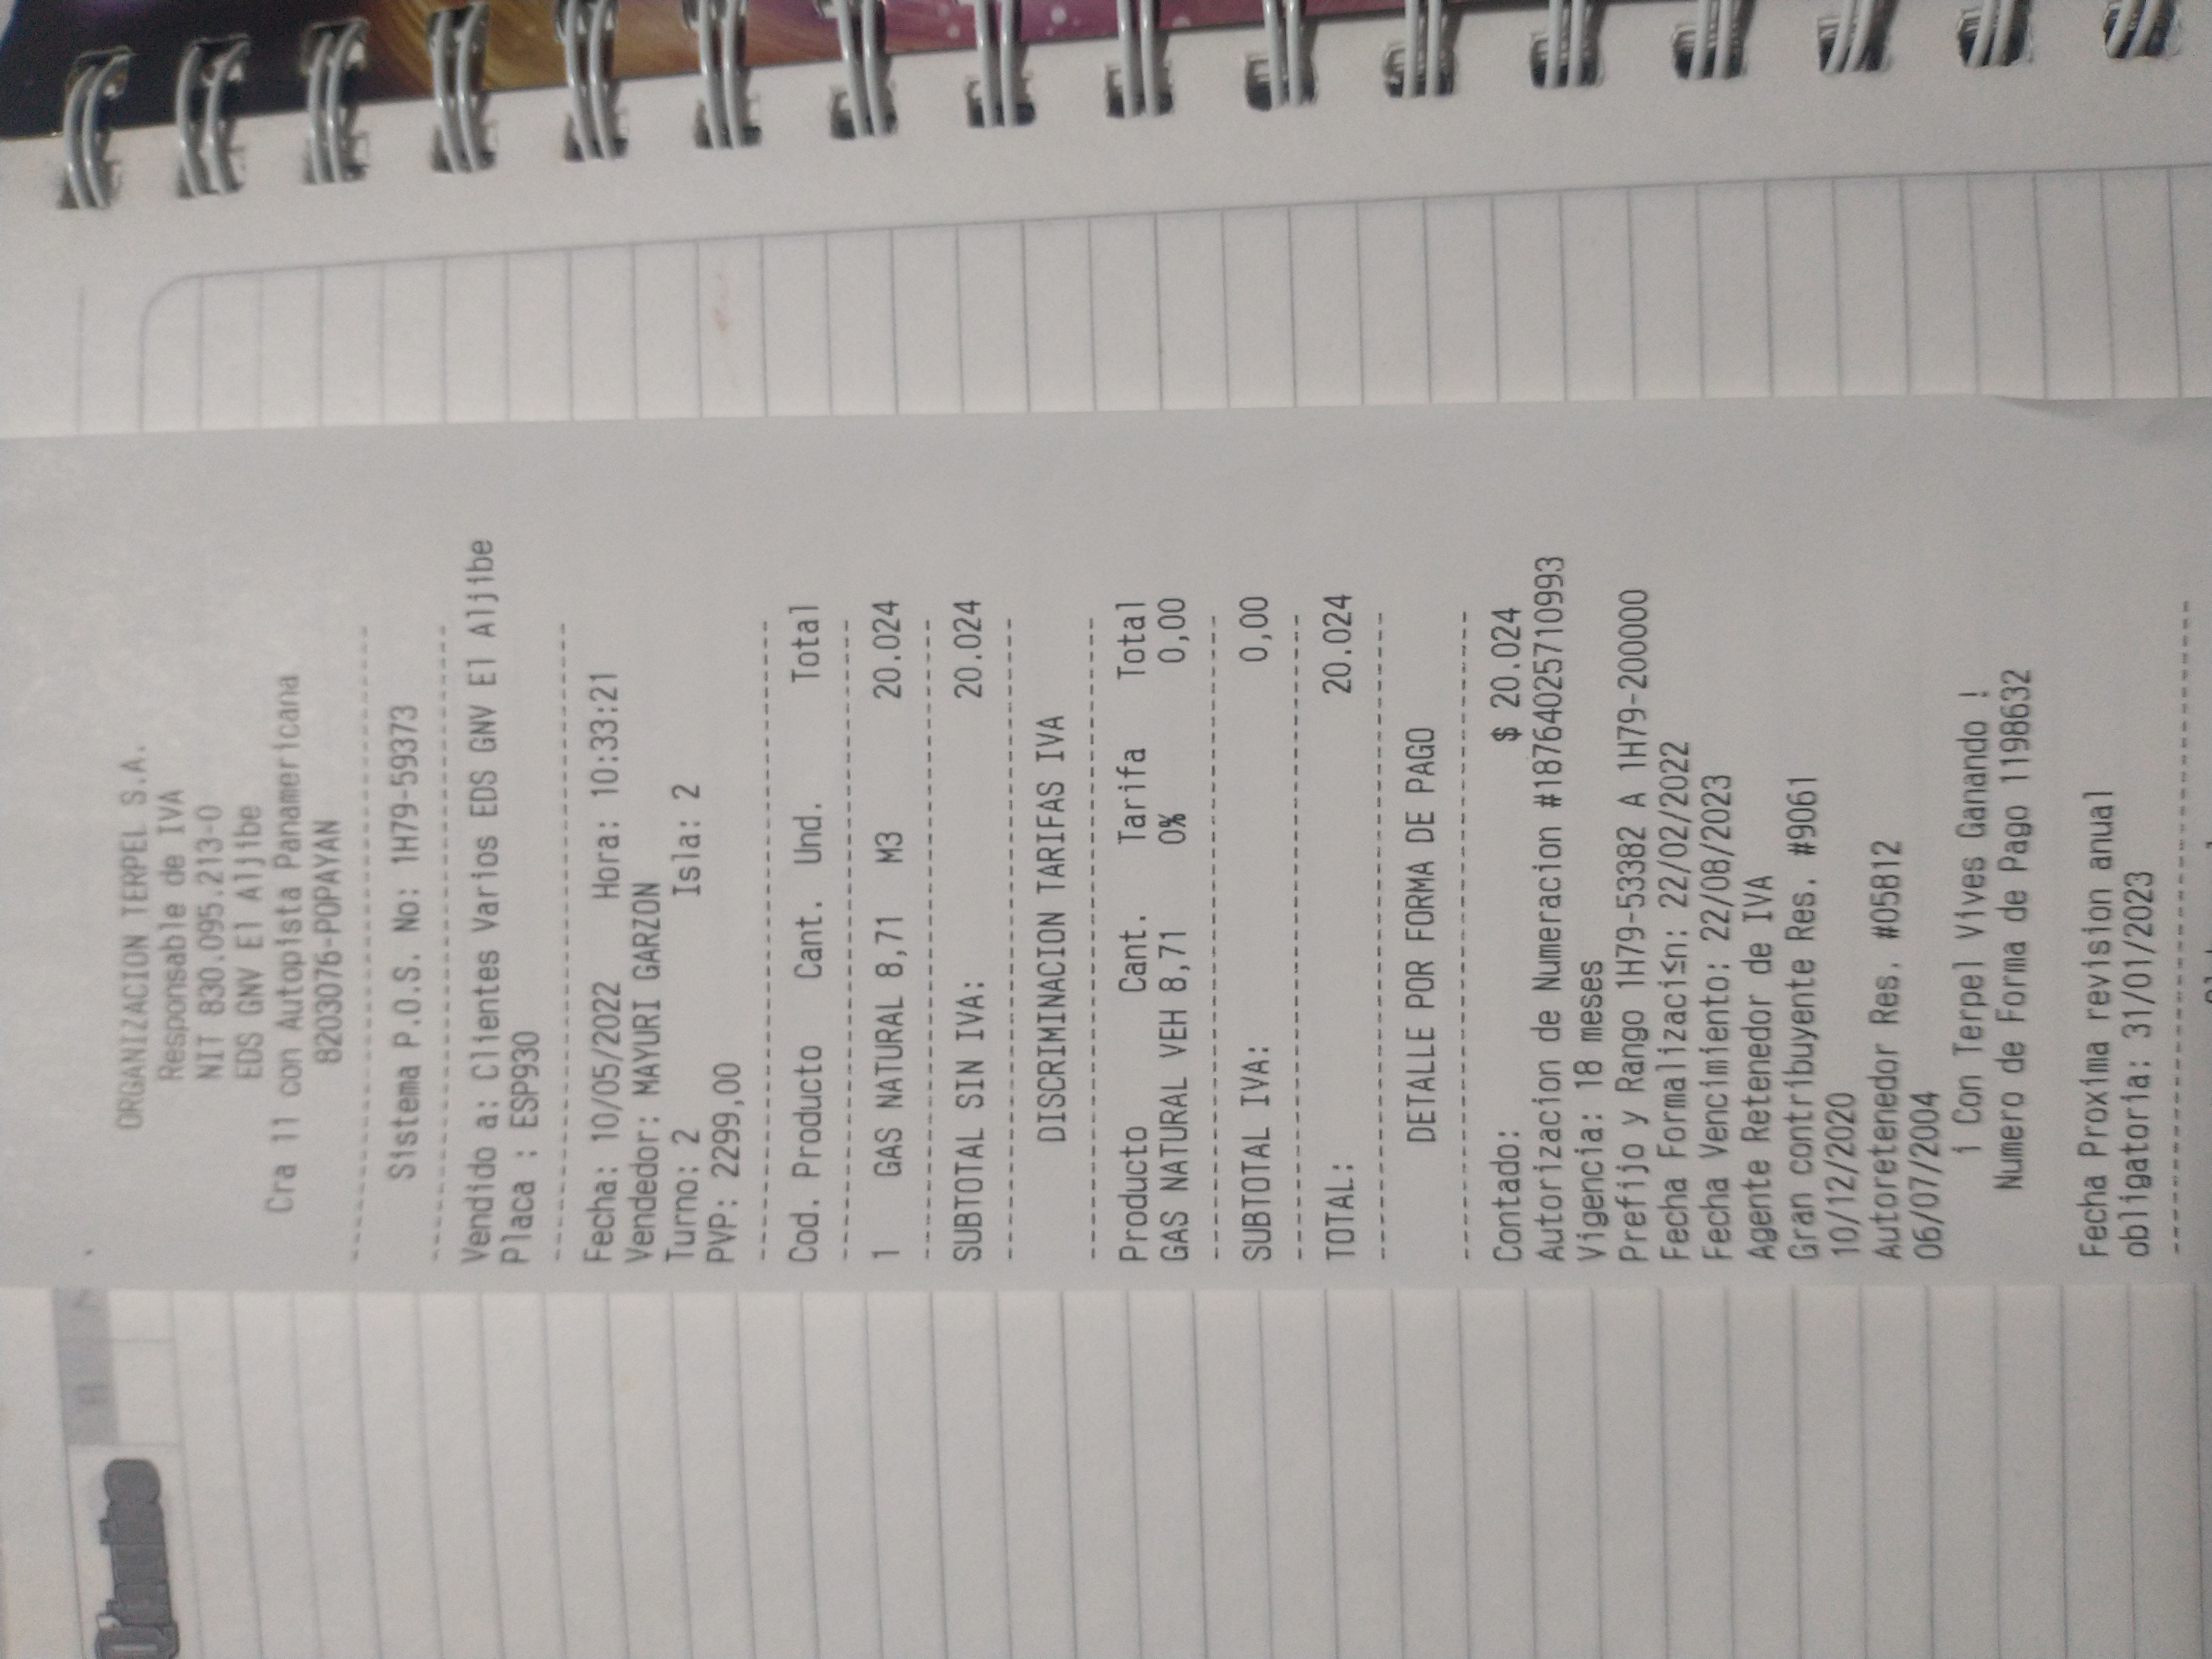 ORGANIZACION TERPEL S.A.
Responsable de IVA
NIT 830.095.213-0
EDS GNV El Aljibe
Cra 11 con Autopista Panamericana
8203076-POPAYAN
--------------------------------
Sistema P.O.S. No: 1H79-59373
--------------------------------
Vendido a: Clientes Varios EDS GNV El Aljibe
Placa : ESP930
--------------------------------
Fecha: 10/05/2022 Hora: 10:33:21
Vendedor: MAYURI GARZON
Turno: 2 Isla: 2
PVP: 2299,00
--------------------------------
Cod. Producto Cant. Und. Total
--------------------------------
1 GAS NATURAL 8,71 M3 20.024
--------------------------------
SUBTOTAL SIN IVA: 20.024
--------------------------------
DISCRIMINACION TARIFAS IVA
--------------------------------
Producto Cant. Tarifa Total
GAS NATURAL VEH 8,71 0% 0,00
--------------------------------
SUBTOTAL IVA: 0,00
--------------------------------
TOTAL: 20.024
--------------------------------
DETALLE POR FORMA DE PAGO
--------------------------------
Contado: $ 20.024
Autorizacion de Numeracion #18764025710993
Vigencia: 18 meses
Prefijo y Rango 1H79-53382 A 1H79-200000
Fecha Formalizaci≤n: 22/02/2022
Fecha Vencimiento: 22/08/2023
Agente Retenedor de IVA
Gran contribuyente Res. #9061
10/12/2020
Autoretenedor Res. #05812
06/07/2004
¡ Con Terpel Vives Ganando !
Numero de Forma de Pago 1198632
Fecha Proxima revision anual
obligatoria: 31/01/2023
--------------------------------